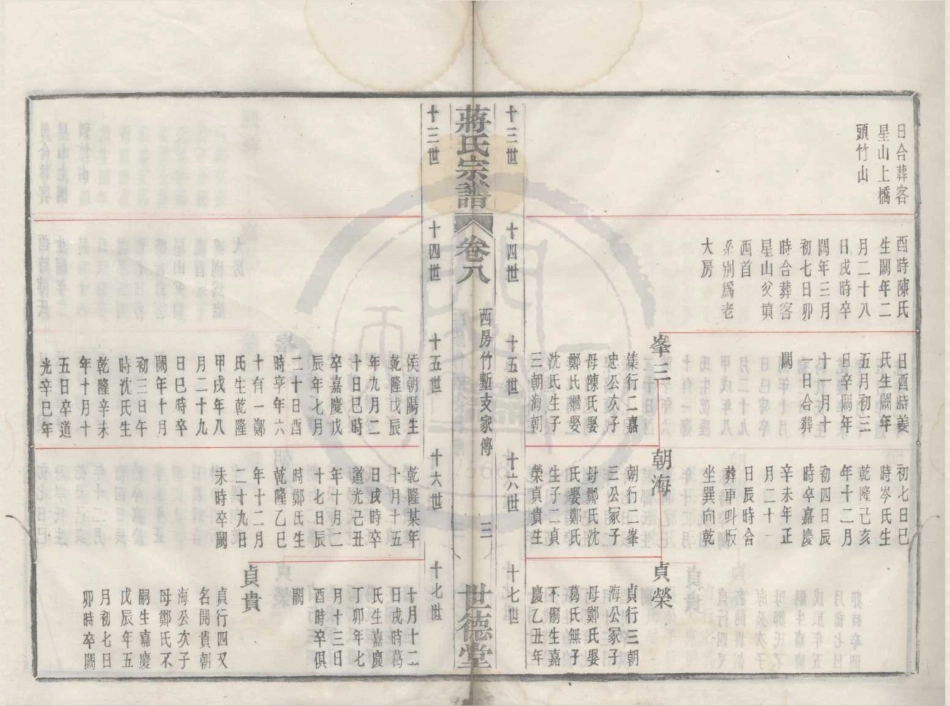 十三世
日合葬客
星山上橋
頭竹山
十四世
酉時陳氏
生闕年二
月二十八
日戌時卒
闕年三月
初七日卯
時合葬客
星山父墳
酉首
系別爲老
大房
十五世
日酉時姜
氏生闕年
五月初三
日辛闕年
十月初十
日合葬
闕
峯三
棻行二嘉
忠公次子
母陳氏娶
鄭氏繼娶
沈氏生子
三朝海朝
十六世
初七日巳
時岑氏生
乾隆己亥
年十二月
初四日辰
時卒嘉慶
辛未年正
月二十一
日辰時合
葬車叫坂
坐巽向乾
朝海
朝行二峯
三公冢子
母鄭氏沈
氏娶鄭氏
氏生子二
榮貞貴生
十七世
貞榮
貞行三朝
海公冢子
母鄭氏娶
葛氏無子
不嗣生嘉
慶乙丑年
蔣氏宗譜 卷八
西房竹塹支家傳 三
世德堂
十三世
十四世
十五世
侯朝陽生
乾隆戊辰
年九月二
十日巳時
卒嘉慶戊
辰年七月
二十日酉
時卒年六
十有一鄭
氏生乾隆
甲戌年八
月二十九
日巳時卒
闕年十月
初三日午
時沈氏生
乾隆辛未
年十月十
五日卒道
光辛巳年
十六世
乾隆某年
十月十五
日戌時卒
道光己丑
年十月二
十七日辰
時鄭氏生
乾隆乙巳
年十二月
二十九日
未時卒闕
十七世
十月十二
日戌時葛
氏生嘉慶
丁卯年七
月十三日
酉時卒俱
闕
貞貴
貞行四又
名開貴朝
海公次子
母鄭氏不
嗣生嘉慶
戊辰年五
月初七日
卯時卒闕